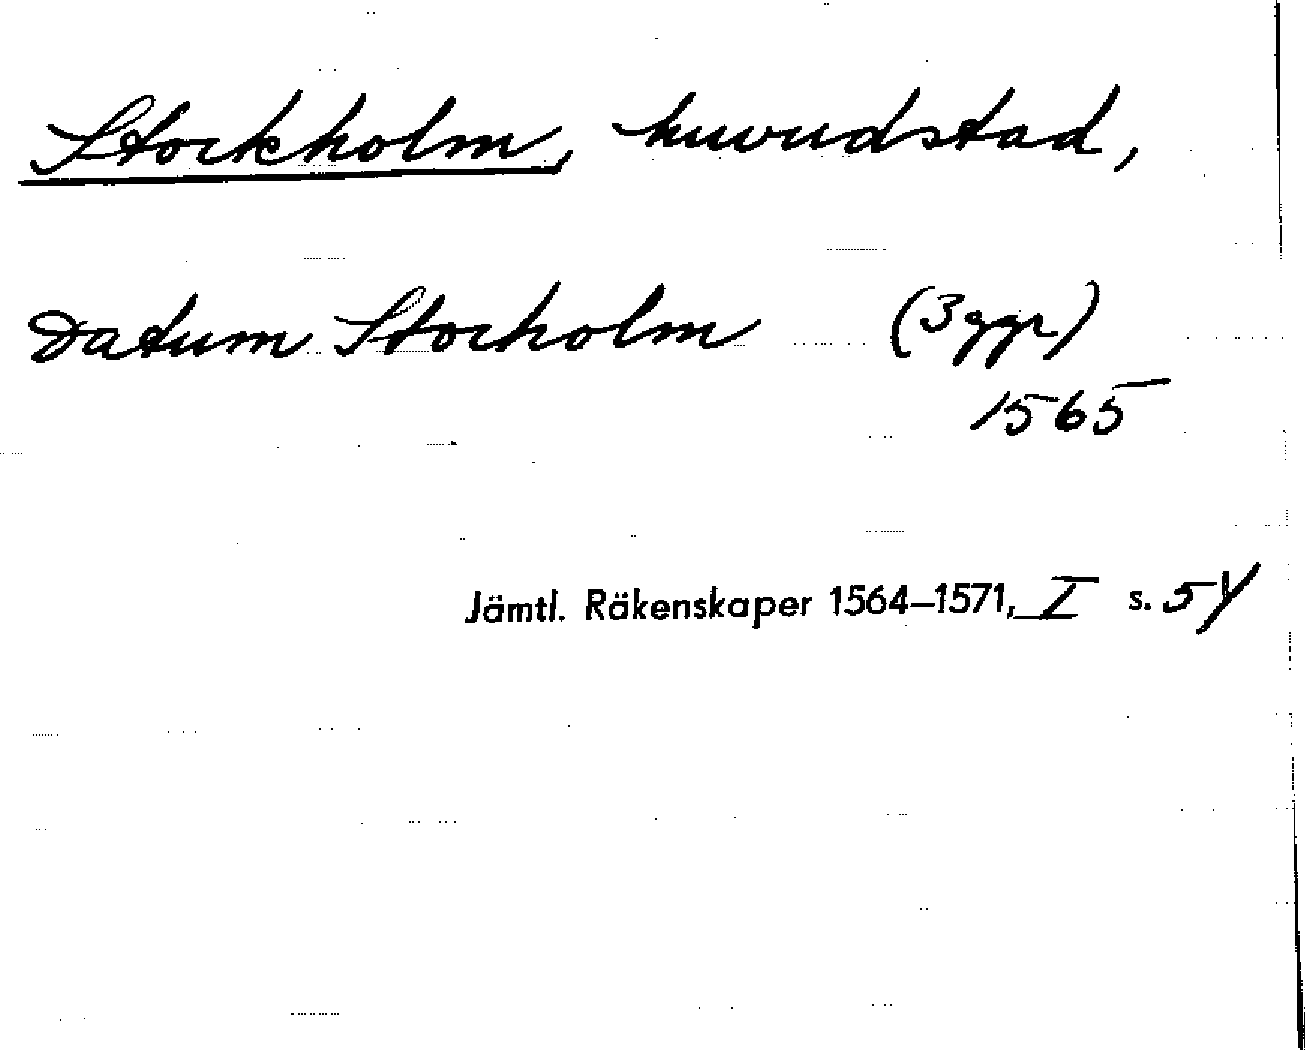 Stockholm, huvudstad,
Datum Stocholm (3 ggr)
1565
Jämtl. Räkenskaper 1564–1571, I s. 54